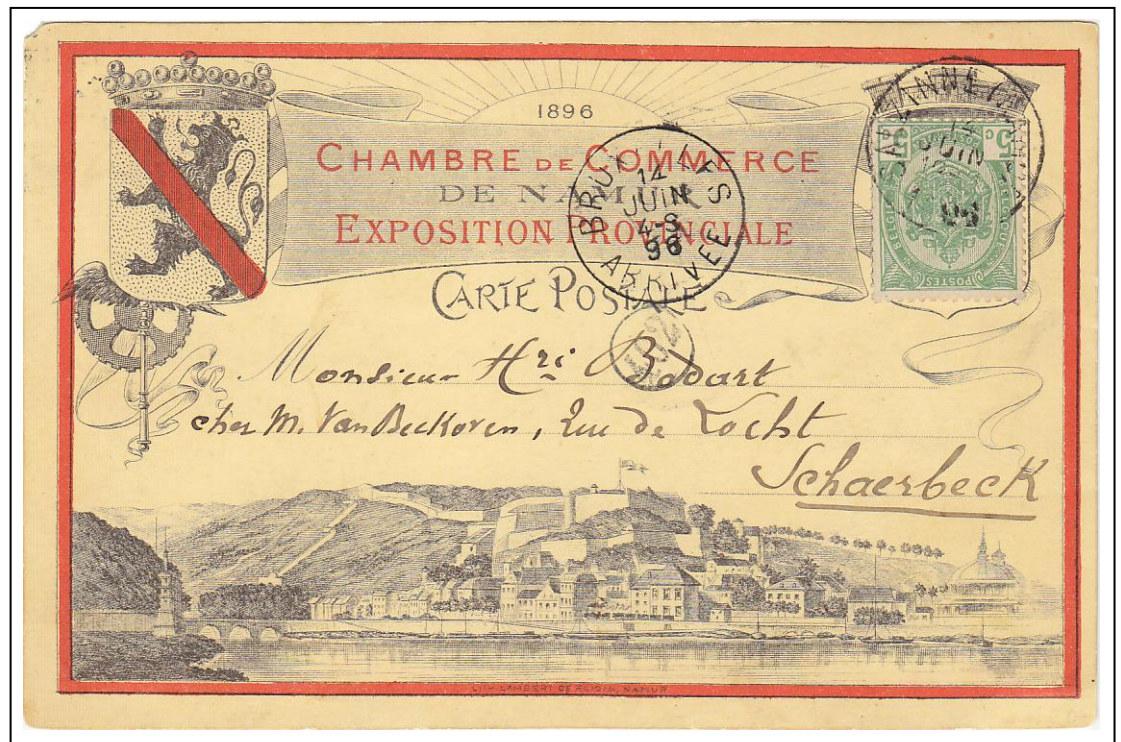 1896
CHAMBRE DE COMMERCE
DE NAMUR
EXPOSITION PROVINCIALE
CARTE POSTALE
BRUXELLES
14
JUIN
4-S
96
ARRIVEE
14
JUIN
96
5 C
5
BELGIQUE
POSTES
Monsieur Hri Bodart
chez M. Van Beckoven, Rue de Locht
Schaerbeek
LITH. LAMBERT DE ROISIN, NAMUR